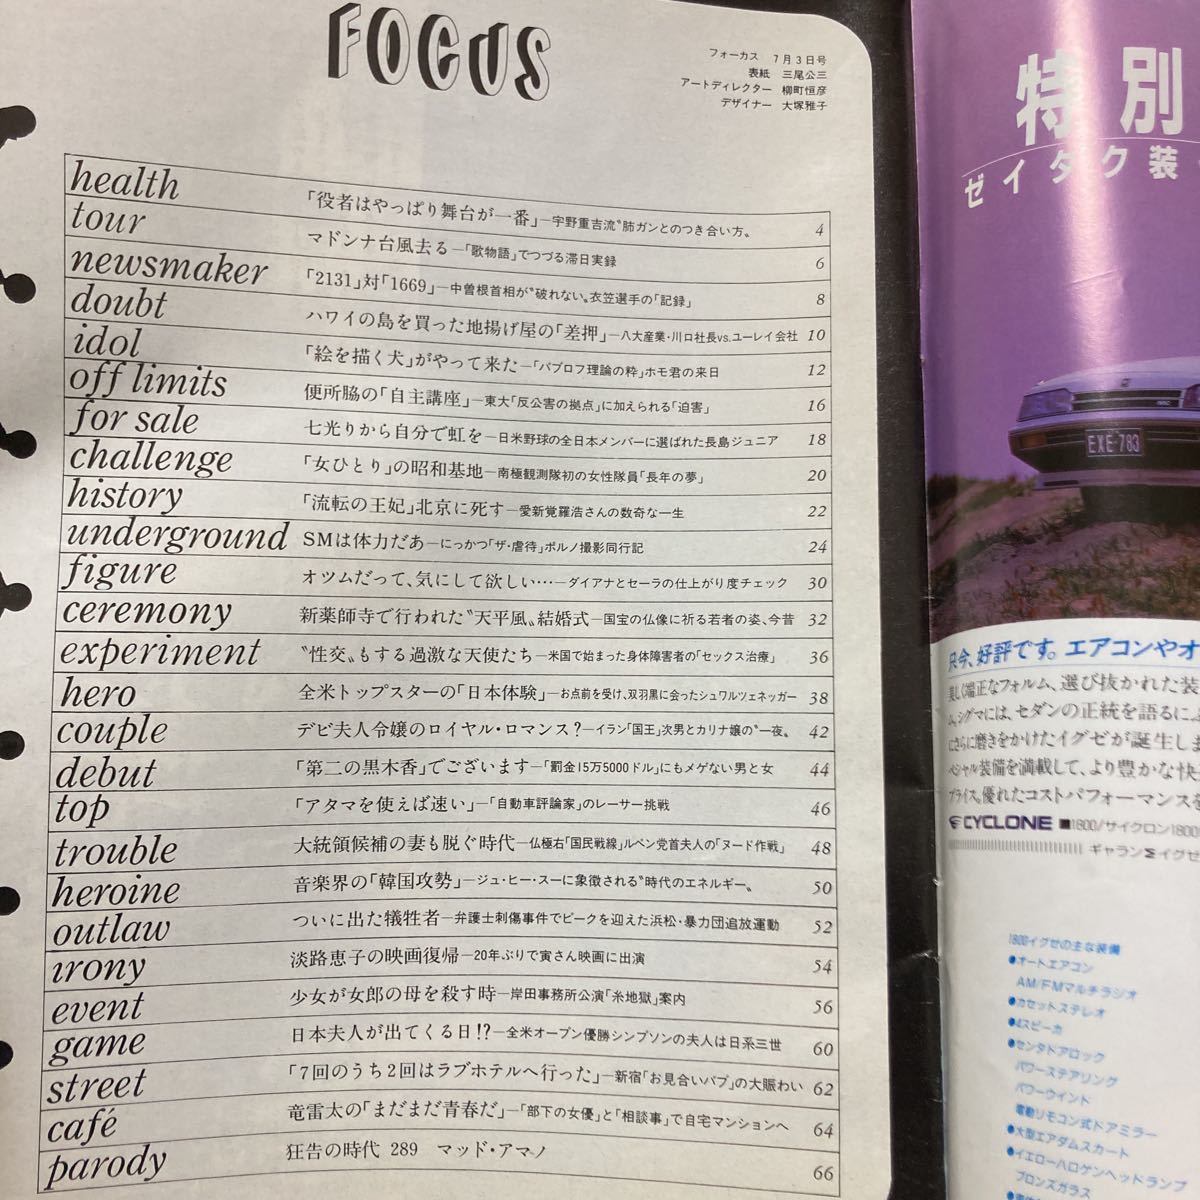 FOCUS
フォーカス 7月3日号
表紙 三尾公三
アートディレクター 柳町恒彦
デザイナー 大塚雅子
health 「役者はやっぱり舞台が一番」―宇野重吉流〝肺ガンとのつき合い方〟 4
tour マドンナ台風去る―「歌物語」でつづる滞日実録 6
newsmaker 「2131」対「1669」―中曽根首相が〝破れない〟衣笠選手の「記録」 8
doubt ハワイの島を買った地揚げ屋の「差押」―八大産業・川口社長vs.ユーレイ会社 10
idol 「絵を描く犬」がやって来た―「パブロフ理論の粋」ホモ君の来日 12
off limits 便所脇の「自主講座」―東大「反公害の拠点」に加えられる「迫害」 16
for sale 七光りから自分で虹を―日米野球の全日本メンバーに選ばれた長島ジュニア 18
challenge 「女ひとり」の昭和基地―南極観測隊初の女性隊員「長年の夢」 20
history 「流転の王妃」北京に死す―愛新覚羅浩さんの数奇な一生 22
underground SMは体力だあ―にっかつ「ザ・虐待」ポルノ撮影同行記 24
figure オツムだって、気にして欲しい…―ダイアナとセーラの仕上がり度チェック 30
ceremony 新薬師寺で行われた〝天平風〟結婚式―国宝の仏像に祈る若者の姿、今昔 32
experiment 〝性交〟もする過激な天使たち―米国で始まった身体障害者の「セックス治療」 36
hero 全米トップスターの「日本体験」―お点前を受け、双羽黒に会ったシュワルツェネッガー 38
couple デビ夫人令嬢のロイヤル・ロマンス?―イラン「国王」次男とカリナ嬢の〝一夜〟 42
debut 「第二の黒木香」でございます―「罰金15万5000ドル」にもメゲない男と女 44
top 「アタマを使えば速い」―「自動車評論家」のレーサー挑戦 46
trouble 大統領候補の妻も脱ぐ時代―仏極右「国民戦線」ルペン党首夫人の「ヌード作戦」 48
heroine 音楽界の「韓国攻勢」―ジュ・ヒー・スーに象徴される〝時代のエネルギー〟 50
outlaw ついに出た犠牲者―弁護士刺傷事件でピークを迎えた浜松・暴力団追放運動 52
irony 淡路恵子の映画復帰―20年ぶりで寅さん映画に出演 54
event 少女が女郎の母を殺す時―岸田事務所公演「糸地獄」案内 56
game 日本夫人が出てくる日!?―全米オープン優勝シンプソンの夫人は日系三世 60
street 「7回のうち2回はラブホテルへ行った」―新宿「お見合いパブ」の大賑わい 62
café 竜雷太の「まだまだ青春だ」―「部下の女優」と「相談事」で自宅マンションへ 64
parody 狂告の時代 289 マッド・アマノ 66
特別
ゼイタク装
EXE-783
只今、好評です。エアコンやオ
美しく端正なフォルム、選び抜かれた装
ム、シグマには、セダンの正統を語るによ
にさらに磨きをかけたイグゼが誕生しま
ペシャル装備を満載して、より豊かな快
プライス。優れたコストパフォーマンスを
CYCLONE ■1800/サイクロン1800
ギャランΣイグゼ
1800イグゼの主な装備
●オートエアコン
AM/FMマルチラジオ
●カセットステレオ
●4スピーカ
●センタドアロック
パワーステアリング
パワーウインド
電動リモコン式ドアミラー
●大型エアダムスカート
●イエローハロゲンヘッドランプ
ブロンズガラス